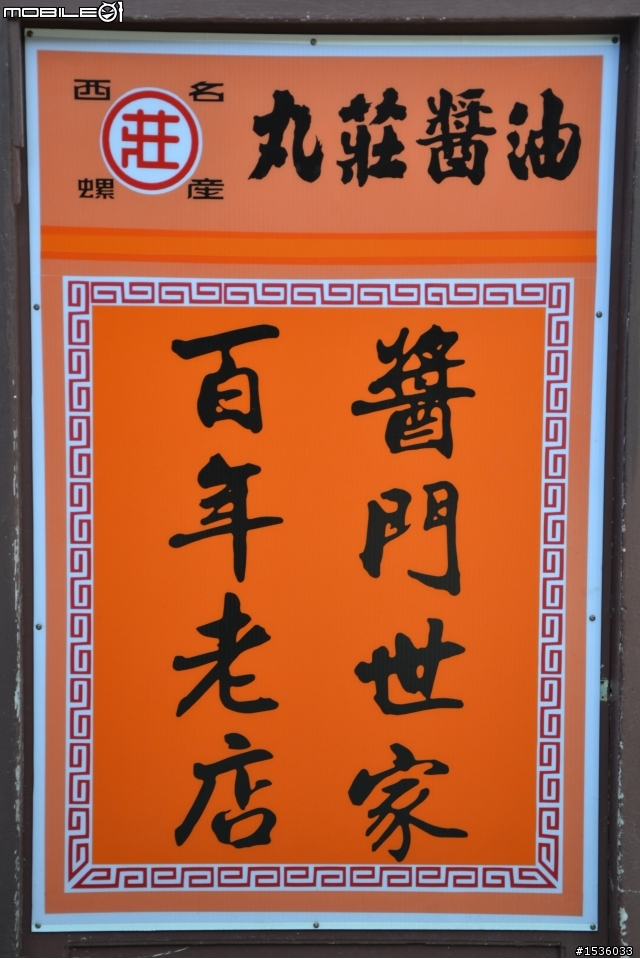 MOBILE01
西螺名產
莊
丸莊醬油
醬門世家
百年老店
#1536033